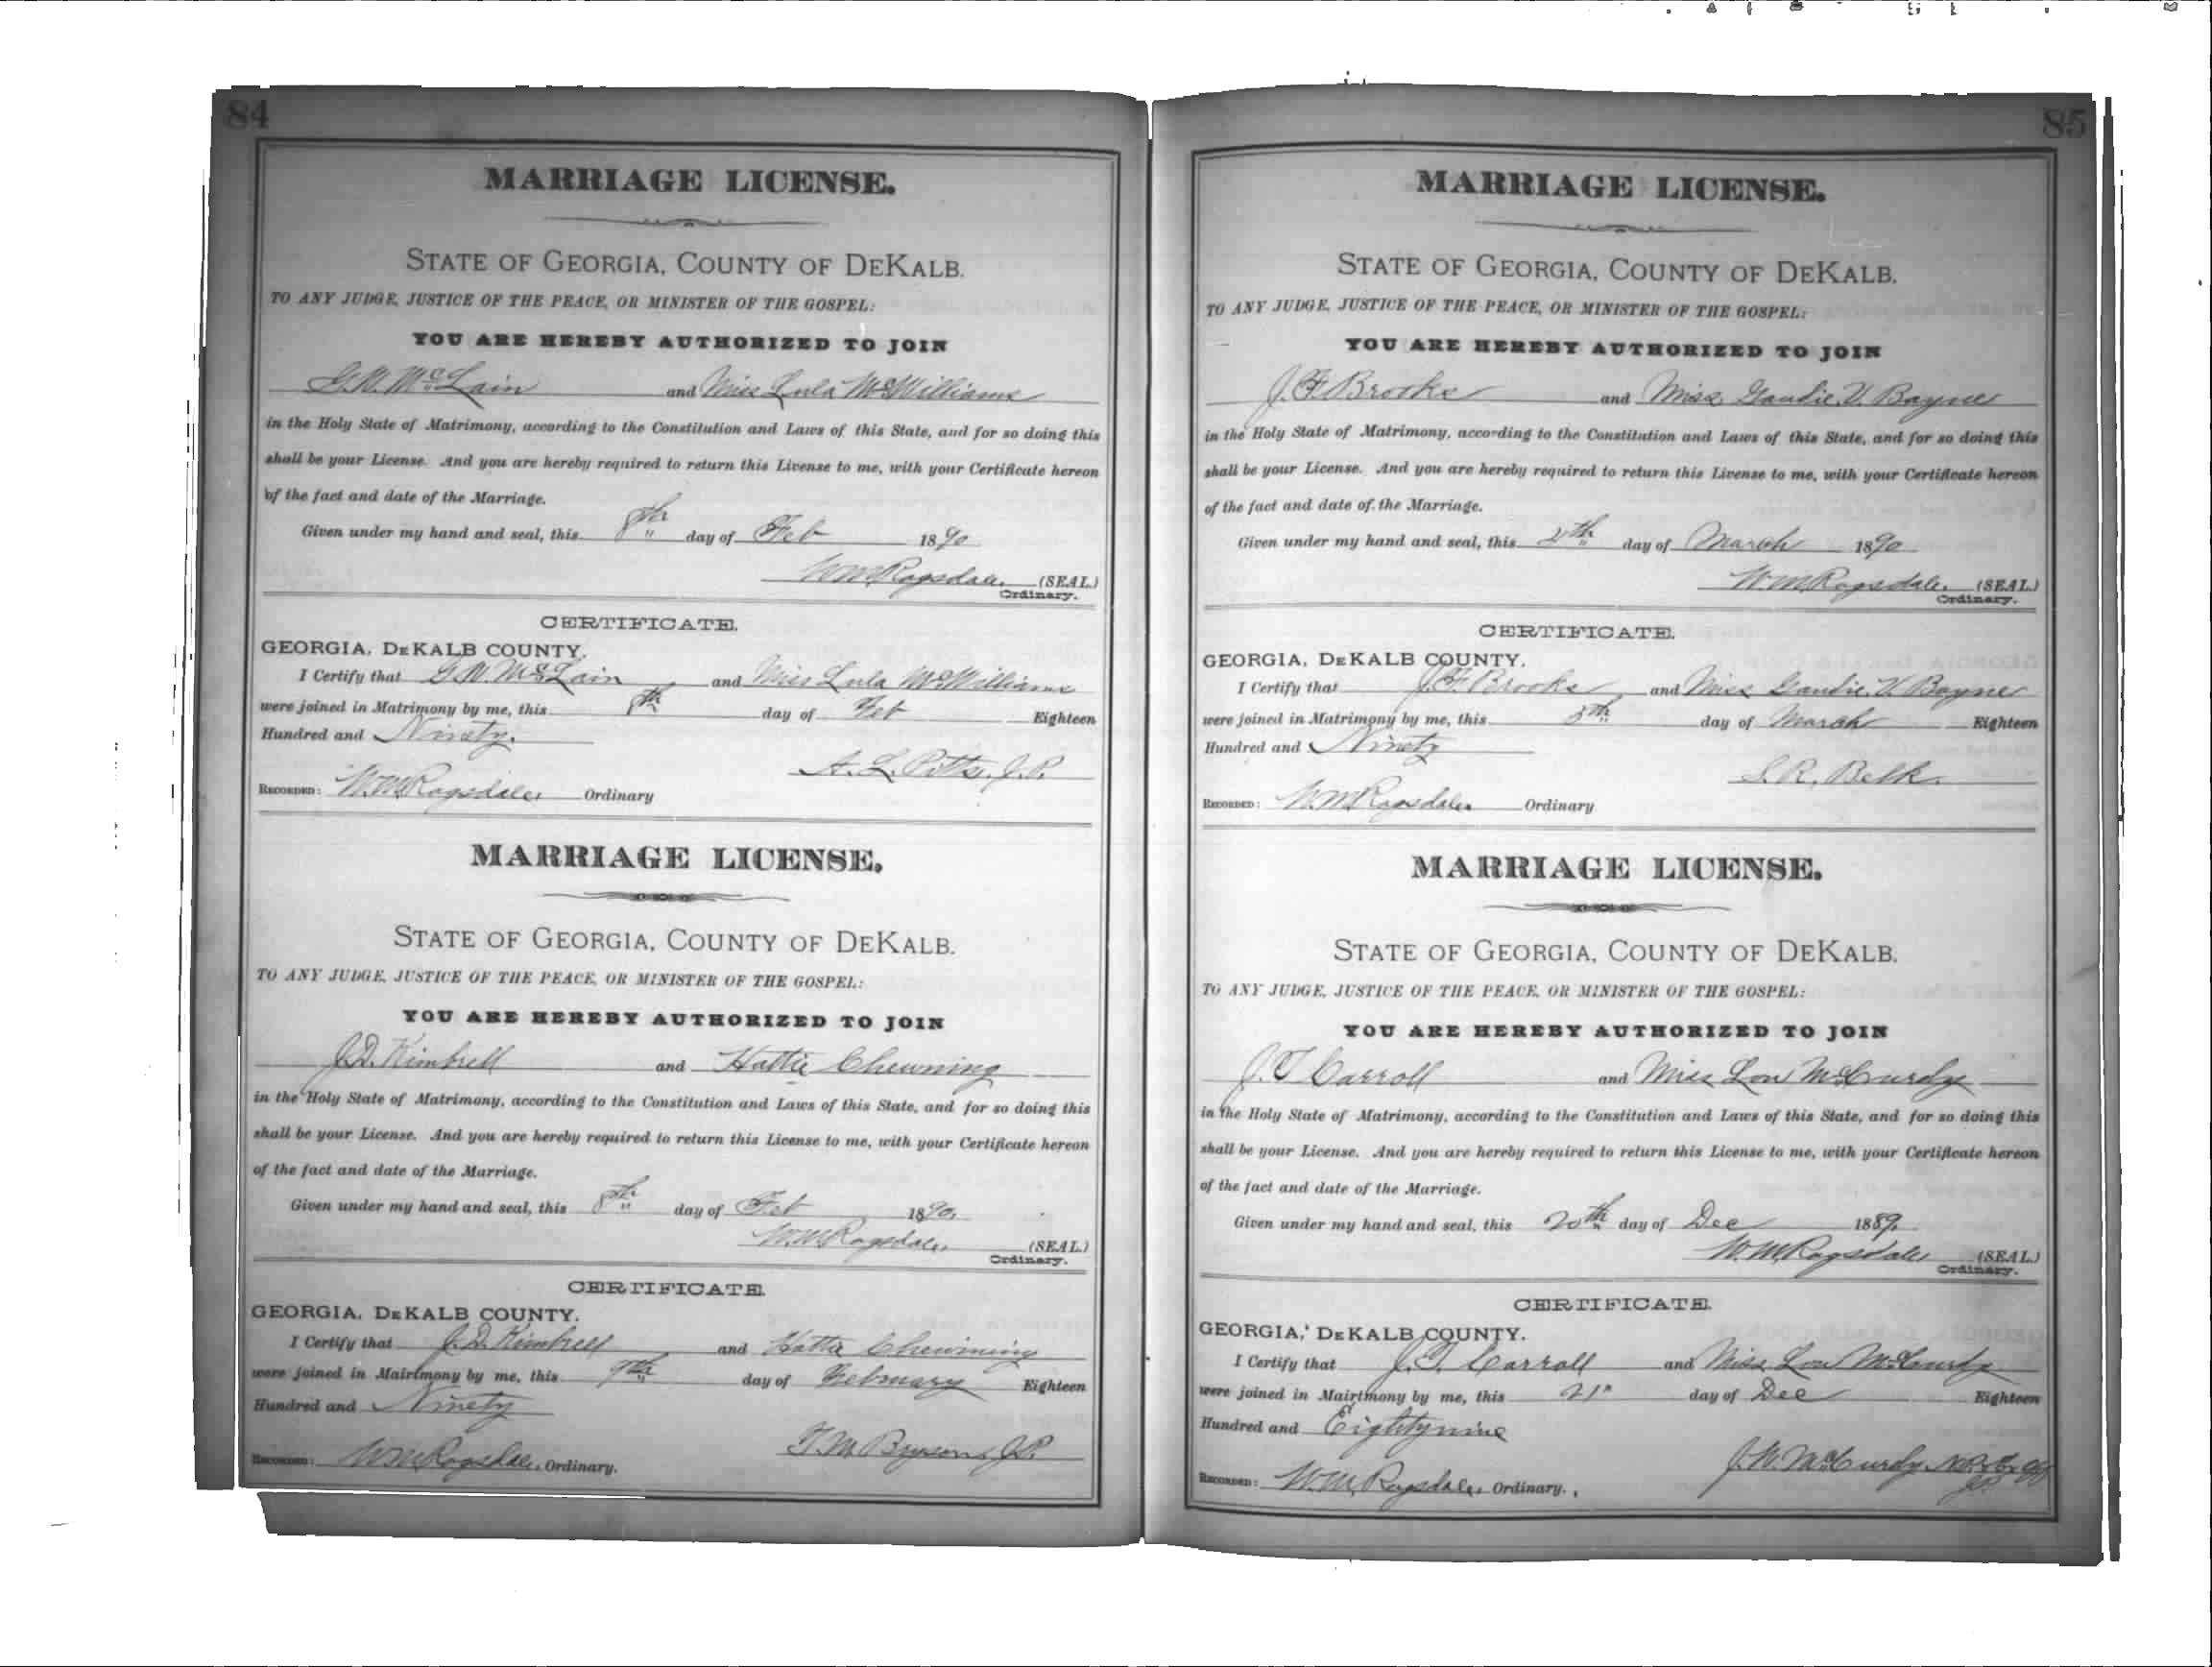 84
MARRIAGE LICENSE.
STATE OF GEORGIA, COUNTY OF DEKALB.
TO ANY JUDGE, JUSTICE OF THE PEACE, OR MINISTER OF THE GOSPEL:
YOU ARE HEREBY AUTHORIZED TO JOIN
G.W. McLain and Miss Lula McWilliams
in the Holy State of Matrimony, according to the Constitution and Laws of this State, and for so doing this
shall be your License. And you are hereby required to return this License to me, with your Certificate hereon
of the fact and date of the Marriage.
Given under my hand and seal, this 8th day of Feb 1890
W.M. Ragsdale. (SEAL)
Ordinary.
CERTIFICATE.
GEORGIA, DEKALB COUNTY.
I Certify that G.W. McLain and Miss Lula McWilliams
were joined in Matrimony by me, this 8th day of Feb Eighteen
Hundred and Ninety.
A. L. Pitts, J.P.
RECORDED: W.M. Ragsdale, Ordinary
MARRIAGE LICENSE.
STATE OF GEORGIA, COUNTY OF DEKALB.
TO ANY JUDGE, JUSTICE OF THE PEACE, OR MINISTER OF THE GOSPEL:
YOU ARE HEREBY AUTHORIZED TO JOIN
J.D. Kimbrell and Hattie Chewning
in the Holy State of Matrimony, according to the Constitution and Laws of this State, and for so doing this
shall be your License. And you are hereby required to return this License to me, with your Certificate hereon
of the fact and date of the Marriage.
Given under my hand and seal, this 8th day of Feb 1890.
W.M. Ragsdale, (SEAL)
Ordinary.
CERTIFICATE.
GEORGIA, DEKALB COUNTY.
I Certify that J.D. Kimbrell and Hattie Chewning
were joined in Mairtmony by me, this 9th day of February Eighteen
Hundred and Ninety
T.M. Bryson, J.P.
RECORDED: W.M. Ragsdale, Ordinary.
85
MARRIAGE LICENSE.
STATE OF GEORGIA, COUNTY OF DEKALB.
TO ANY JUDGE, JUSTICE OF THE PEACE, OR MINISTER OF THE GOSPEL:
YOU ARE HEREBY AUTHORIZED TO JOIN
J.F. Brooks and Miss V. Bayne
in the Holy State of Matrimony, according to the Constitution and Laws of this State, and for so doing this
shall be your License. And you are hereby required to return this License to me, with your Certificate hereon
of the fact and date of the Marriage.
Given under my hand and seal, this day of March 1890
W.M. Ragsdale. (SEAL)
Ordinary.
CERTIFICATE.
GEORGIA, DEKALB COUNTY.
I Certify that J.F. Brooks and Miss V. Bayne
were joined in Matrimony by me, this day of March Eighteen
Hundred and Ninety
S. R. Belk.
RECORDED: W.M. Ragsdale. Ordinary
MARRIAGE LICENSE.
STATE OF GEORGIA, COUNTY OF DEKALB.
TO ANY JUDGE, JUSTICE OF THE PEACE, OR MINISTER OF THE GOSPEL:
YOU ARE HEREBY AUTHORIZED TO JOIN
J.T. Carroll and Miss Lou McCurdy
in the Holy State of Matrimony, according to the Constitution and Laws of this State, and for so doing this
shall be your License. And you are hereby required to return this License to me, with your Certificate hereon
of the fact and date of the Marriage.
Given under my hand and seal, this 20th day of Dec 1889.
W.M. Ragsdale (SEAL)
Ordinary.
CERTIFICATE.
GEORGIA, DEKALB COUNTY.
I Certify that J.T. Carroll and Miss Lou McCurdy
were joined in Mairtmony by me, this 21" day of Dec Eighteen
Hundred and Eightynine
J.W. McCurdy N.P. & Ex Off
J.P.
RECORDED: W.M. Ragsdale, Ordinary.